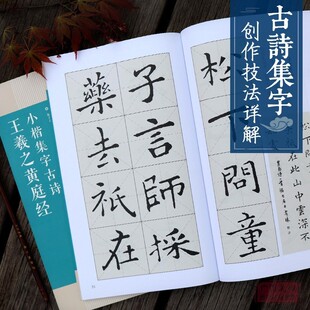 古詩集字
创作技法详解
松下問童
子言師採
藥去祇在
此山中雲深不
小楷集字古诗
王羲之黄庭经